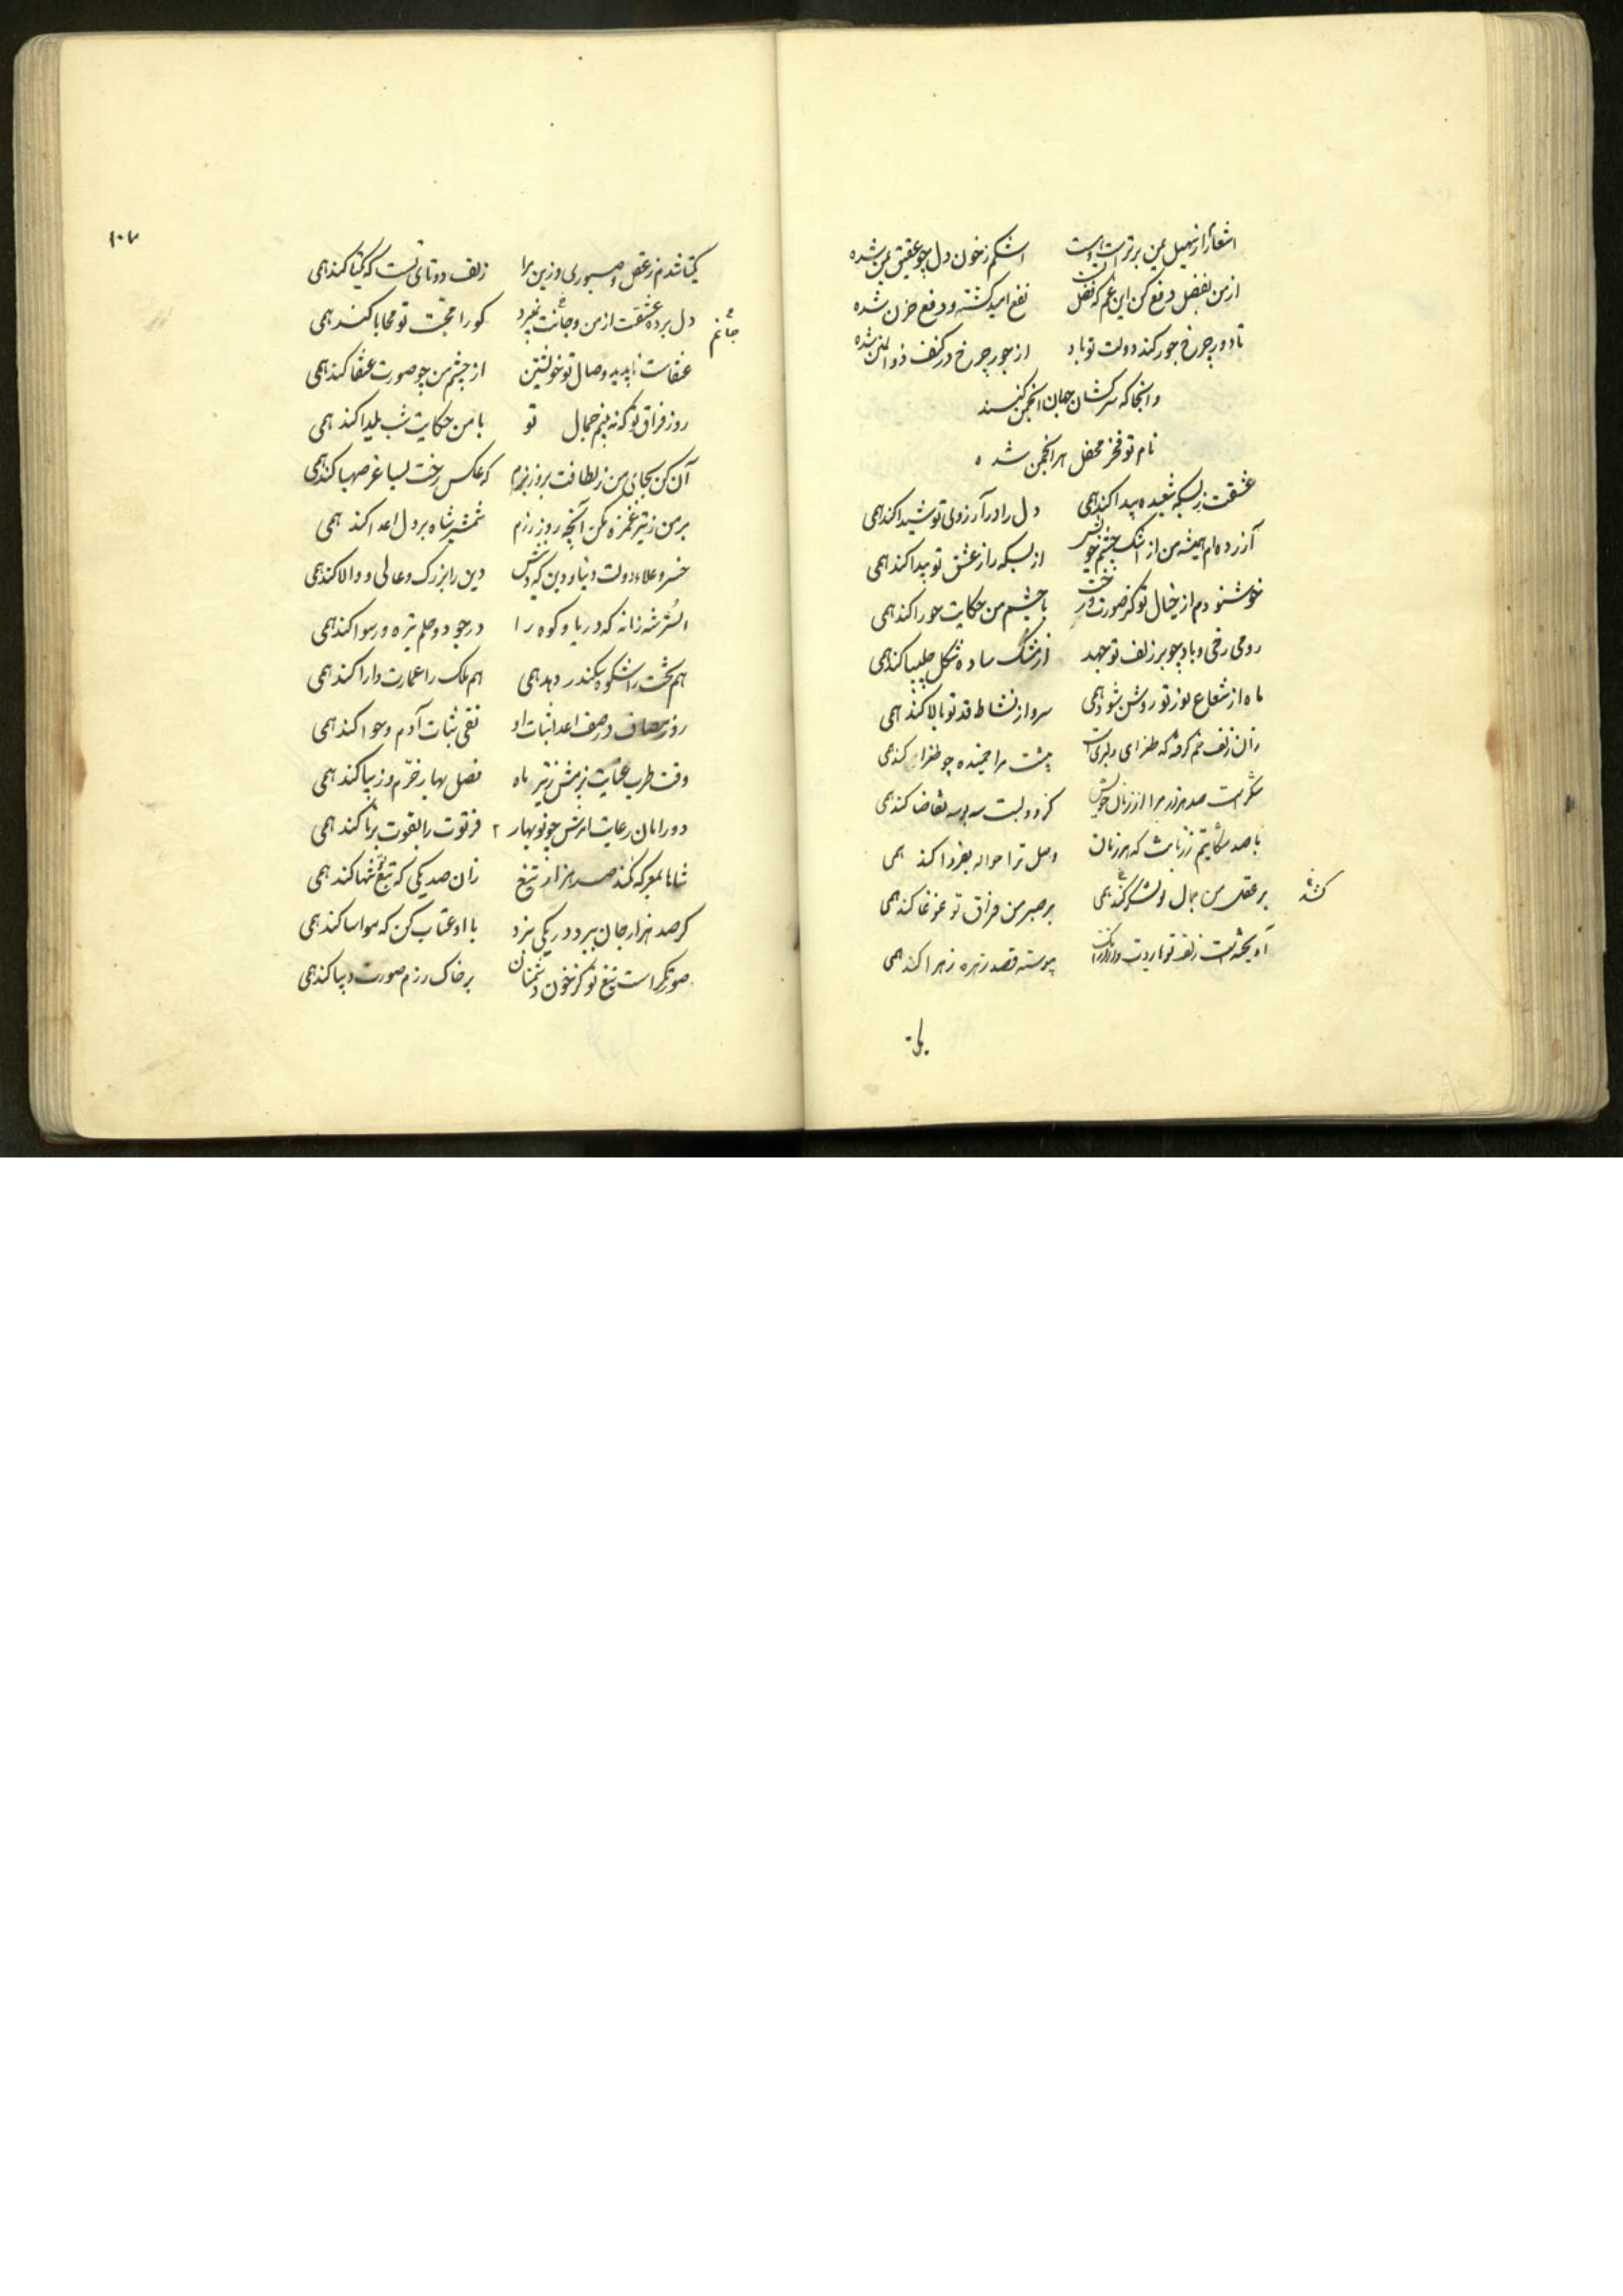 اشعار از سهیل یمن برتر است اشکم ز خون دل چو عقیق یمن شده
از من بفضل دفع کن این غم که فضل نفع امید گشته و دفع حزن شده
تا دور چرخ جور کند دولت تو باد از جور چرخ در کنف ذوالمنن شده
وانجا که سرکشان جهان انجمن کنند
نام تو فخر محفل هر انجمن شده
عشقت ز بسکه شعبده پیدا کند همی دل را در آرزوی تو شیدا کند همی
آزرده ام همیشه من از اشک چشم خویش از بسکه راز عشق تو پیدا کند همی
خوشنودم از خیال تو کز صورت رخت با چشم من حکایت حورا کند همی
رومی رخی و باد چو بر زلف تو جهد از مشک ساده شکل چلیپا کند همی
ماه از شعاع نور تو روشن شود همی سرو از نشاط قد تو بالا کند همی
زان زلف خم گرفته که طغرای دلبری است پشت مرا خمیده چو طغرا کند همی
شکر است صد هزار مرا از زبان خویش کز دو لبت سه بوسه تقاضا کند همی
با صد شکایتم ز زبانت که هر زمان وصل ترا حواله بفردا کند همی
بر عقل من جمال تو لشکر کند همی بر صبر من فراق تو غوغا کند همی
کشد
آویخته است زلف تو هاروت وار پیوسته قصد زهره زهرا کند همی
یکتا
۱۰۳
یکتا شدم ز عقل و صبوری و زین مرا زلف دوتای تست که یکتا کند همی
دل برده عشقت از من و جانت نبرد کو را محبت تو محابا کند همی
جانم
عنقاست ناپدید و وصال تو خویشتن از چشم من چو صورت عنقا کند همی
روز فراق تو که نه بینم جمال تو با من حکایت شب یلدا کند همی
آن کن بجای من ز لطافت بروز بزم که عکس رخت بساغر صهبا کند همی
بر من ز تیر غمزه مکن آنچه روز رزم شمشیر شاه بر دل اعدا کند همی
خسرو علاء دولت دنیا و دین که دین را بزرگ و عالی و والا کند همی
اتسز شه زمانه که دریا و کوه را در جود و حلم تیره و رسوا کند همی
هم تخت را شکوه سکندر دهد همی هم ملک را عمارت دارا کند همی
روز مصاف در صف اعدا ثبات او نفی ثبات آدم و حوا کند همی
وقت طرب عنایت بزمش ز تیر ماه فصل بهار خرم و زیبا کند همی
دور امان رعایت امرش چو نوبهار ۲ فرتوت را بقوت برنا کند همی
شاها بمعرکه نکند صد هزار تیغ زان صد یکی که تیغ تو تنها کند همی
گر صد هزار جان ببرد در یکی نبرد با او عتاب کن که مواسا کند همی
صورتگر است تیغ تو کز خون دشمنان بر خاک رزم صورت دیبا کند همی